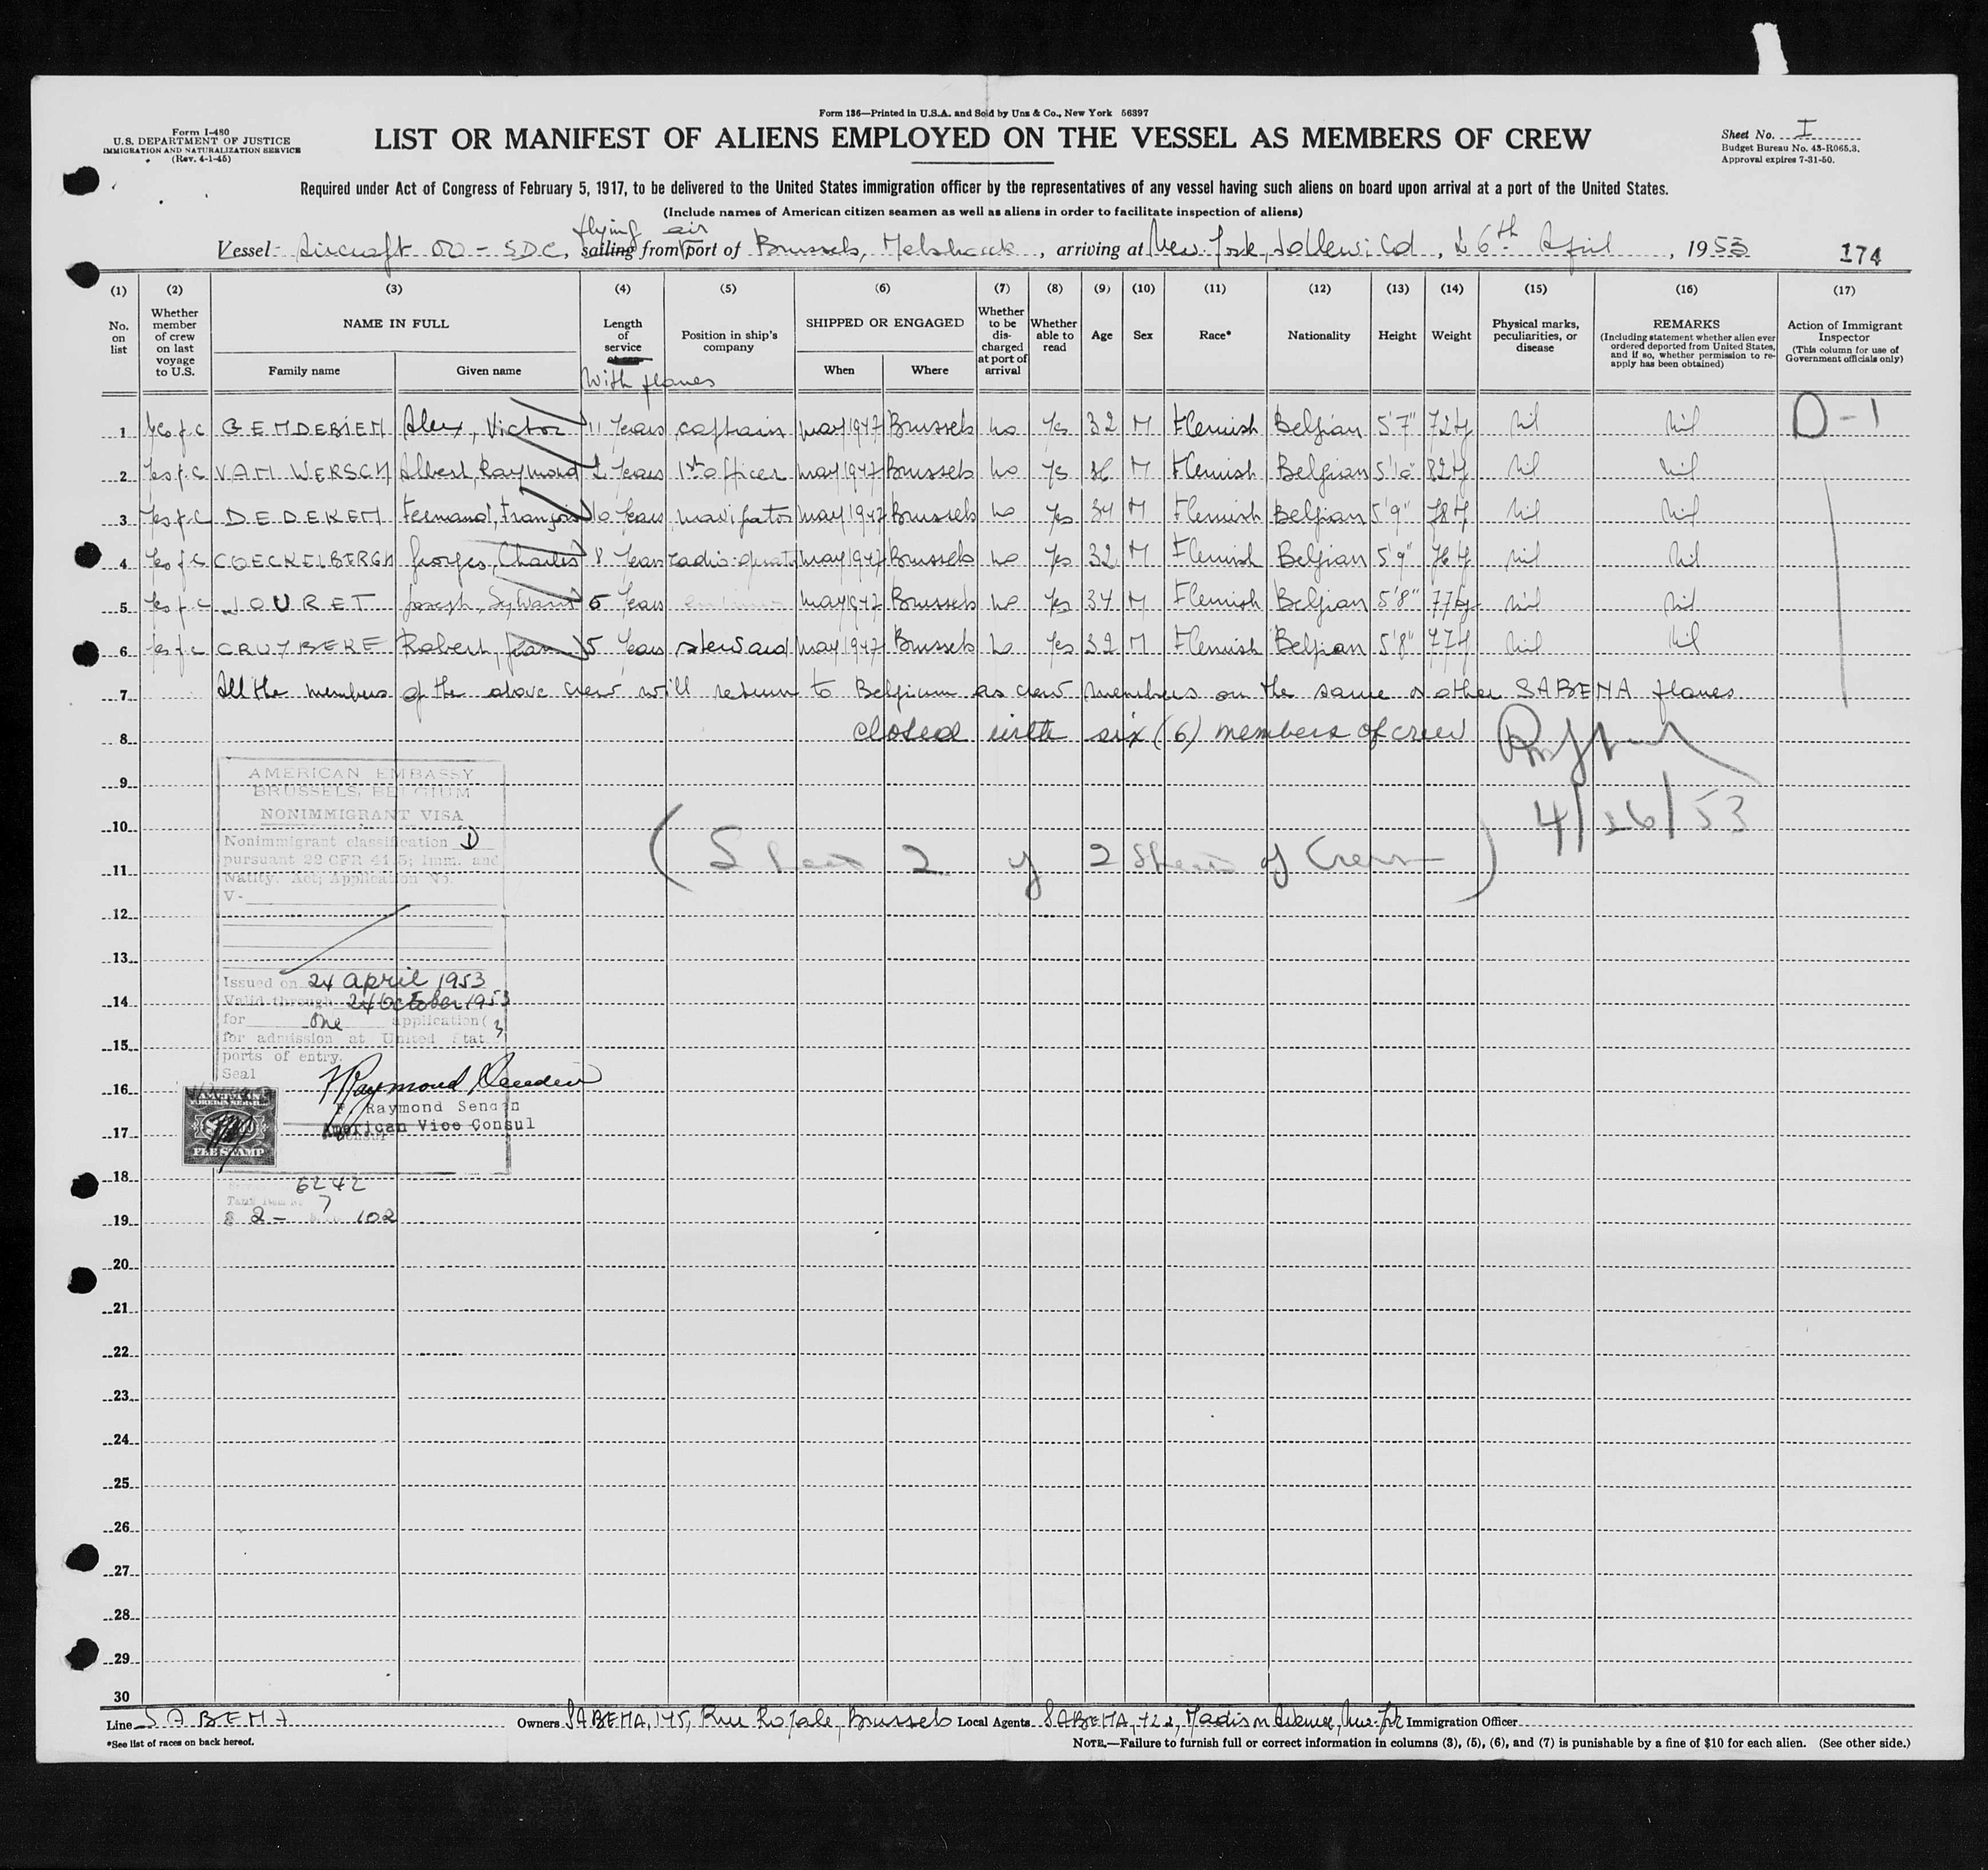 Form 136—Printed in U.S.A. and Sold by Unz & Co., New York 56397
Form I-480
U.S. DEPARTMENT OF JUSTICE
IMMIGRATION AND NATURALIZATION SERVICE
(Rev. 4-1-45)
LIST OR MANIFEST OF ALIENS EMPLOYED ON THE VESSEL AS MEMBERS OF CREW
Sheet No. I
Budget Bureau No. 43-R065.3.
Approval expires 7-31-50.
Required under Act of Congress of February 5, 1917, to be delivered to the United States immigration officer by the representatives of any vessel having such aliens on board upon arrival at a port of the United States.
(Include names of American citizen seamen as well as aliens in order to facilitate inspection of aliens)
flying air
Vessel Aircraft OO-SDC, sailing from port of Brussels, Melsbroek, arriving at New-York, Idlewild, 26th April, 1953
174
(1) (2) (3) (4) (5) (6) (7) (8) (9) (10) (11) (12) (13) (14) (15) (16) (17)
No. on list
Whether member of crew on last voyage to U.S.
NAME IN FULL
Family name Given name
Length of service
With planes
Position in ship's company
SHIPPED OR ENGAGED
When Where
Whether to be discharged at port of arrival
Whether able to read
Age Sex Race* Nationality Height Weight
Physical marks, peculiarities, or disease
REMARKS
(Including statement whether alien ever ordered deported from United States, and if so, whether permission to reapply has been obtained)
Action of Immigrant Inspector
(This column for use of Government officials only)
1 Yes f.c GENDEBIEN Alex, Victor 11 Years captain May 1947 Brussels no Yes 32 M Flemish Belgian 5'7" 72 nil nil D-1
2 Yes f.c VAN WERSCH Albert, Raymond 2 Years 1st officer May 1947 Brussels no Yes M Flemish Belgian 5'10" 82 nil nil
3 Yes f.c DEDEKEN Fernand, François 10 Years navigator May 1947 Brussels no Yes 34 M Flemish Belgian 5'9" 78 nil nil
4 Yes f.c COECKELBERGH Georges, Charles 8 Years radio-operat May 1947 Brussels no Yes 32 M Flemish Belgian 5'9" 76 nil nil
5 Yes f.c JOURET Joseph, Sylvain 6 Years May 1947 Brussels no Yes 34 M Flemish Belgian 5'8" 77 nil nil
6 Yes f.c CRUYBEKE Robert, Jean 5 Years steward May 1947 Brussels no Yes 32 M Flemish Belgian 5'8" 77 nil nil
7 All the members of the above crew will return to Belgium as crew members on the same or other SABENA planes
8 closed with six (6) members of crew
4/26/53
(Sheet 2 of 2 Sheets of Crew)
AMERICAN EMBASSY
BRUSSELS, BELGIUM
NONIMMIGRANT VISA
Nonimmigrant classification D
pursuant 22 CFR 41.5; Imm. and
Natlty. Act; Application No.
V-
Issued on 24 April 1953
Valid through 24 October 1953
for One application(
for admission at United Stat
ports of entry.
Seal
F. Raymond Senden
American Vice Consul
FEE STAMP
6242
7
$ 2- 102
9
10
11
12
13
14
15
16
17
18
19
20
21
22
23
24
25
26
27
28
29
30
Line SABENA Owners SABENA, 145, Rue Royale, Brussels Local Agents SABENA, 422, Madison Avenue, New-York Immigration Officer
*See list of races on back hereof.
NOTE.—Failure to furnish full or correct information in columns (3), (5), (6), and (7) is punishable by a fine of $10 for each alien. (See other side.)